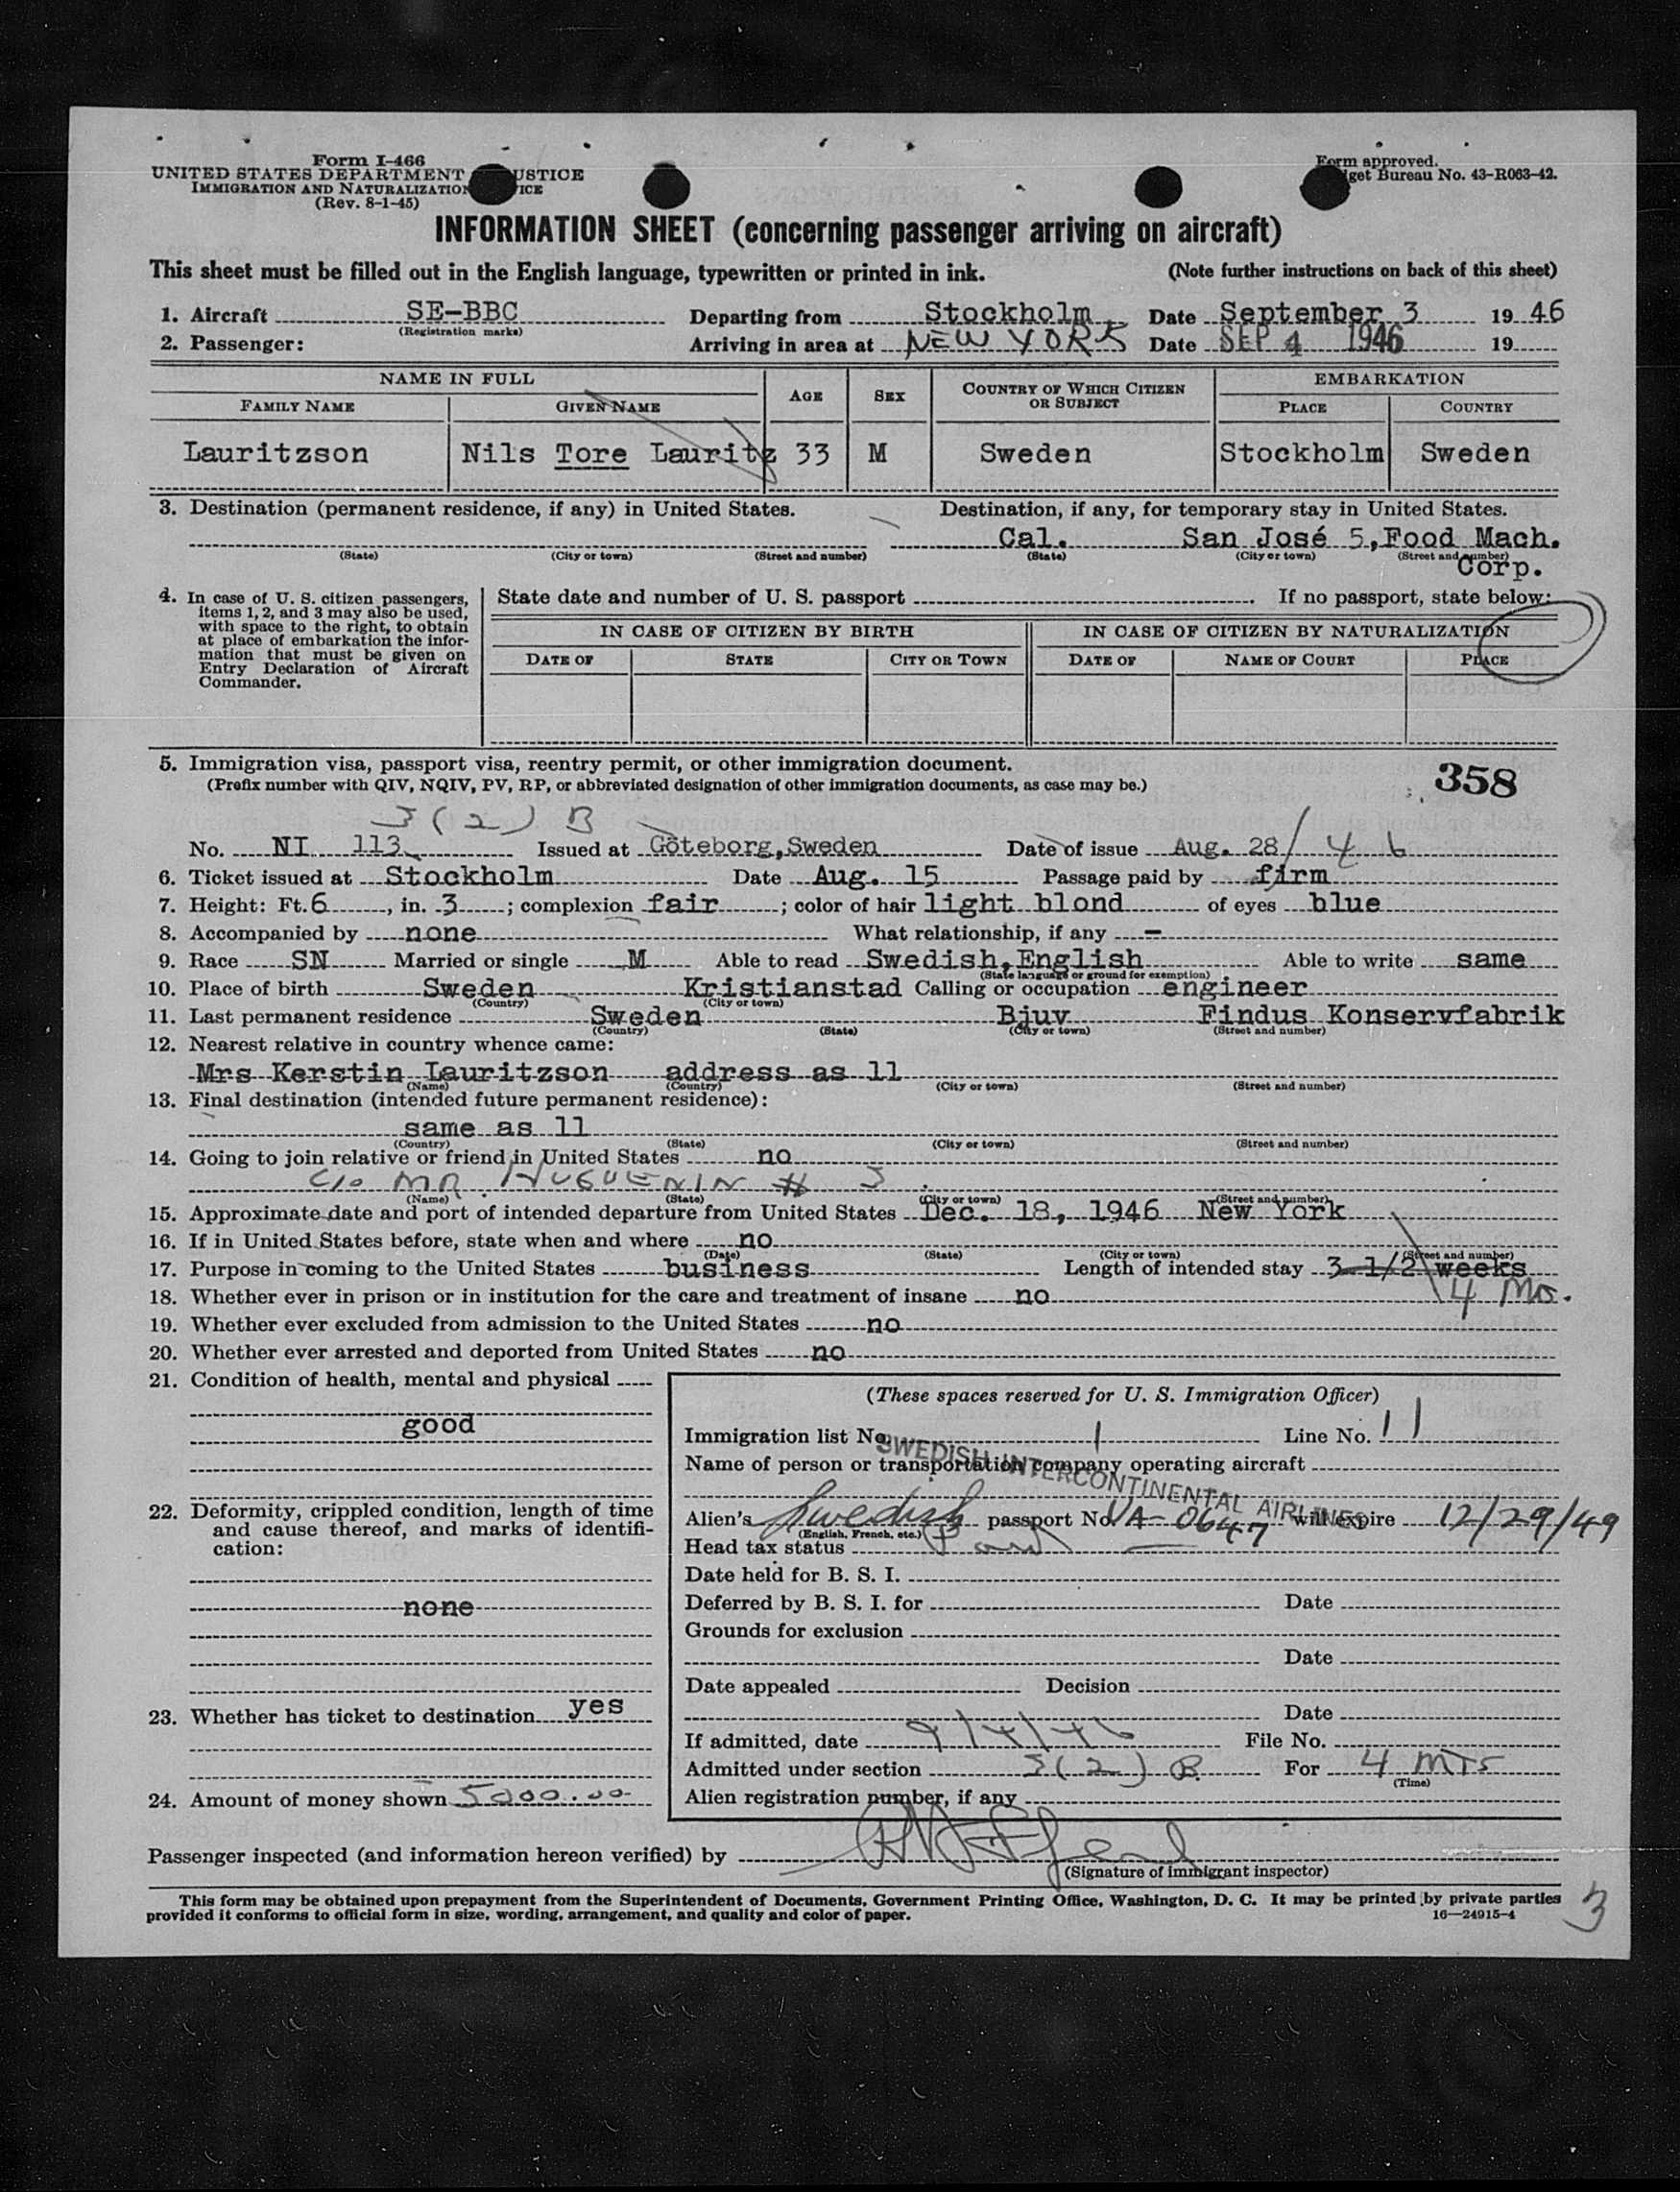 Form I-466
UNITED STATES DEPARTMENT USTICE
IMMIGRATION AND NATURALIZATION ICE
(Rev. 8-1-45)
Form approved.
get Bureau No. 43-R063-42.
INFORMATION SHEET (concerning passenger arriving on aircraft)
This sheet must be filled out in the English language, typewritten or printed in ink. (Note further instructions on back of this sheet)
1. Aircraft SE-BBC Departing from Stockholm Date September 3 19 46
(Registration marks)
2. Passenger: Arriving in area at NEW YORK Date SEP 4 1946 19
NAME IN FULL AGE SEX COUNTRY OF WHICH CITIZEN OR SUBJECT EMBARKATION
FAMILY NAME GIVEN NAME PLACE COUNTRY
Lauritzson Nils Tore Lauritz 33 M Sweden Stockholm Sweden
3. Destination (permanent residence, if any) in United States. Destination, if any, for temporary stay in United States.
Cal. San José 5, Food Mach.
(State) (City or town) (Street and number) (State) (City or town) (Street and number)
Corp.
4. In case of U. S. citizen passengers, items 1, 2, and 3 may also be used, with space to the right, to obtain at place of embarkation the information that must be given on Entry Declaration of Aircraft Commander.
State date and number of U. S. passport If no passport, state below:
IN CASE OF CITIZEN BY BIRTH IN CASE OF CITIZEN BY NATURALIZATION
DATE OF STATE CITY OR TOWN DATE OF NAME OF COURT PLACE
5. Immigration visa, passport visa, reentry permit, or other immigration document.
(Prefix number with QIV, NQIV, PV, RP, or abbreviated designation of other immigration documents, as case may be.)
358
3(2) B
No. NI 113 Issued at Göteborg, Sweden Date of issue Aug. 28/46
6. Ticket issued at Stockholm Date Aug. 15 Passage paid by firm
7. Height: Ft. 6, in. 3; complexion fair; color of hair light blond of eyes blue
8. Accompanied by none What relationship, if any -
9. Race SN Married or single M Able to read Swedish, English Able to write same
(State language or ground for exemption)
10. Place of birth Sweden Kristianstad Calling or occupation engineer
(Country) (City or town)
11. Last permanent residence Sweden Bjuv Findus Konservfabrik
(Country) (State) (City or town) (Street and number)
12. Nearest relative in country whence came:
Mrs Kerstin Lauritzson address as 11
(Name) (Country) (City or town) (Street and number)
13. Final destination (intended future permanent residence):
same as 11
(Country) (State) (City or town) (Street and number)
14. Going to join relative or friend in United States no
C/o MR. HUGUENIN # 3
(Name) (State) (City or town) (Street and number)
15. Approximate date and port of intended departure from United States Dec. 18, 1946 New York
16. If in United States before, state when and where no
(Date) (State) (City or town) (Street and number)
17. Purpose in coming to the United States business Length of intended stay 3 1/2 weeks
4 Mos.
18. Whether ever in prison or in institution for the care and treatment of insane no
19. Whether ever excluded from admission to the United States no
20. Whether ever arrested and deported from United States no
21. Condition of health, mental and physical
good
22. Deformity, crippled condition, length of time and cause thereof, and marks of identification:
none
23. Whether has ticket to destination yes
24. Amount of money shown 5000.00
(These spaces reserved for U. S. Immigration Officer)
Immigration list No. 1 Line No. 11
Name of person or transportation company operating aircraft
SWEDISH INTERCONTINENTAL AIRLINES
Alien's Swedish passport No. VA-0647 will expire 12/29/49
(English, French, etc.)
Head tax status
Date held for B. S. I.
Deferred by B. S. I. for Date
Grounds for exclusion
Date
Date appealed Decision
Date
If admitted, date 9/4/46 File No.
Admitted under section 3(2) B For 4 MTS
(Time)
Alien registration number, if any
Passenger inspected (and information hereon verified) by
(Signature of immigrant inspector)
This form may be obtained upon prepayment from the Superintendent of Documents, Government Printing Office, Washington, D. C. It may be printed by private parties
provided it conforms to official form in size, wording, arrangement, and quality and color of paper. 16—24915-4
3